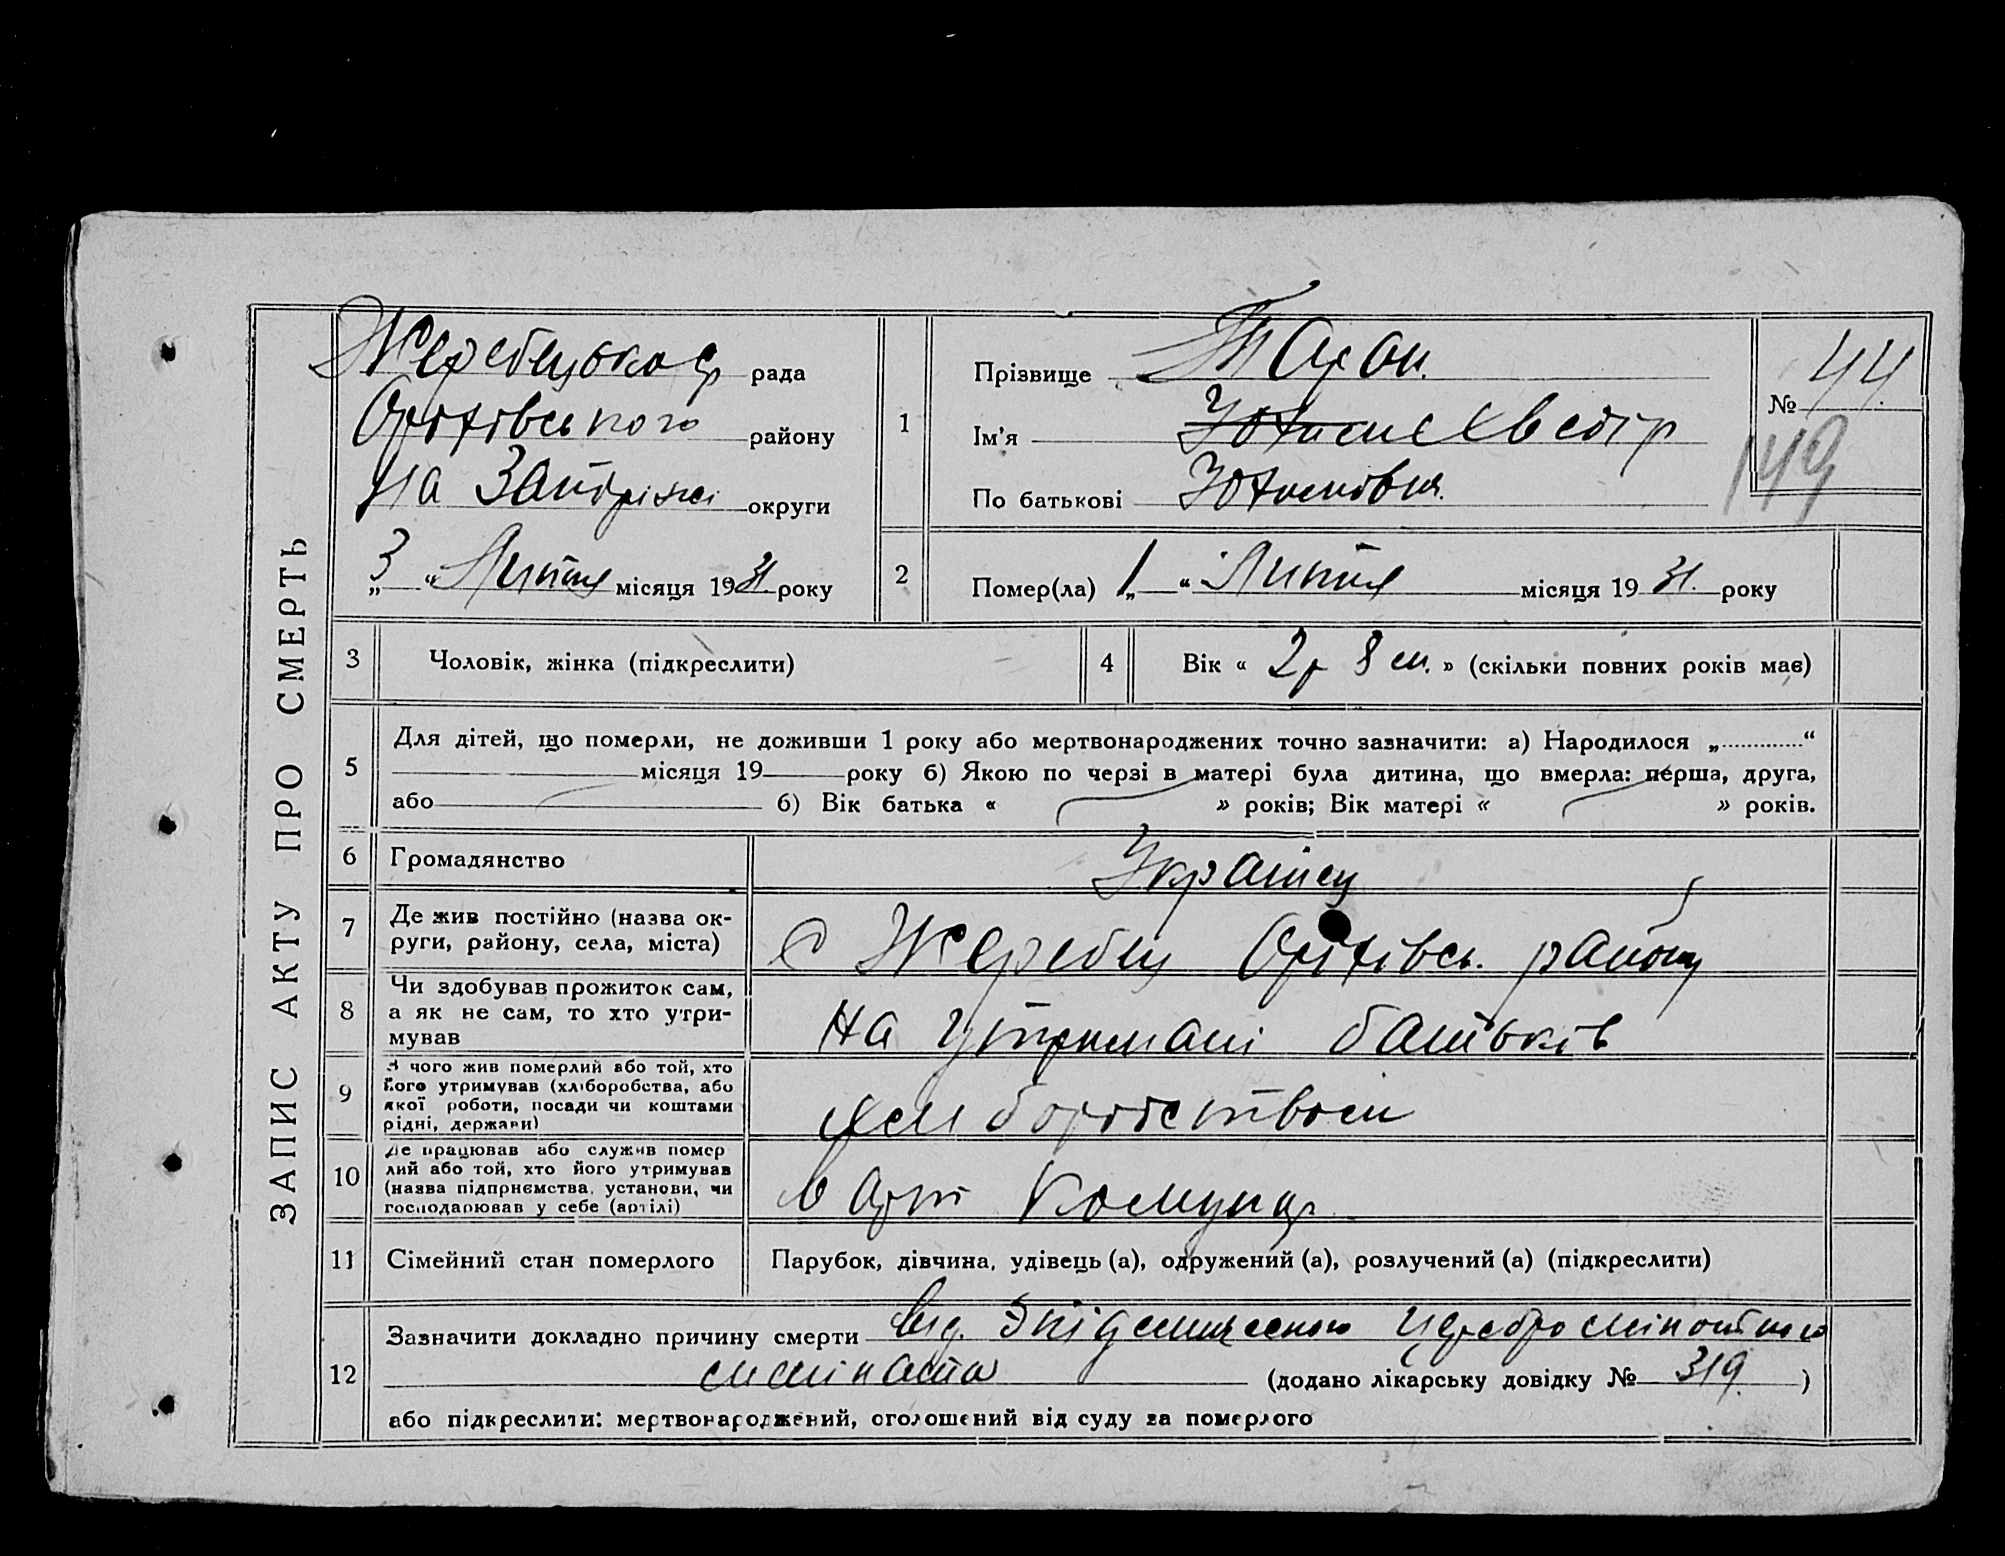 ЗАПИС АКТУ ПРО СМЕРТЬ
Жеребецькая рада
Оріхівського району
на Запоріжжі округи
„ 3 “ Липня місяця 1931 року
1 Прізвище Таран
Ім'я Хведір
По батькові
№ 44
149
2 Помер(ла) „ 1 “ Липня місяця 1931. року
3 Чоловік, жінка (підкреслити)
4 Вік « 2 р 8 м. » (скільки повних років має)
5 Для дітей, що померли, не доживши 1 року або мертвонароджених точно зазначити: а) Народилося „ “
місяця 19 року б) Якою по черзі в матері була дитина, що вмерла: перша, друга,
або б) Вік батька « » років; Вік матері « » років.
6 Громадянство Українец
7 Де жив постійно (назва ок-
руги, району, села, міста) с Жеребец Оріхівсь. району
8 Чи здобував прожиток сам,
а як не сам, то хто утри-
мував на утримані батьків
9 З чого жив померлий або той, хто
його утримував (хліборобства, або
якої роботи, посади чи коштами
рідні, держави) хліборобством
10 Де працював або служив помер
лий або той, хто його утримував
(назва підприємства, установи, чи
господарював у себе (артілі) в Арт Комунар
11 Сімейний стан померлого Парубок, дівчина, удівець (а), одружений (а), розлучений (а) (підкреслити)
12 Зазначити докладно причину смерти від
(додано лікарську довідку № 319. )
або підкреслити: мертвонароджений, оголошений від суду за померлого